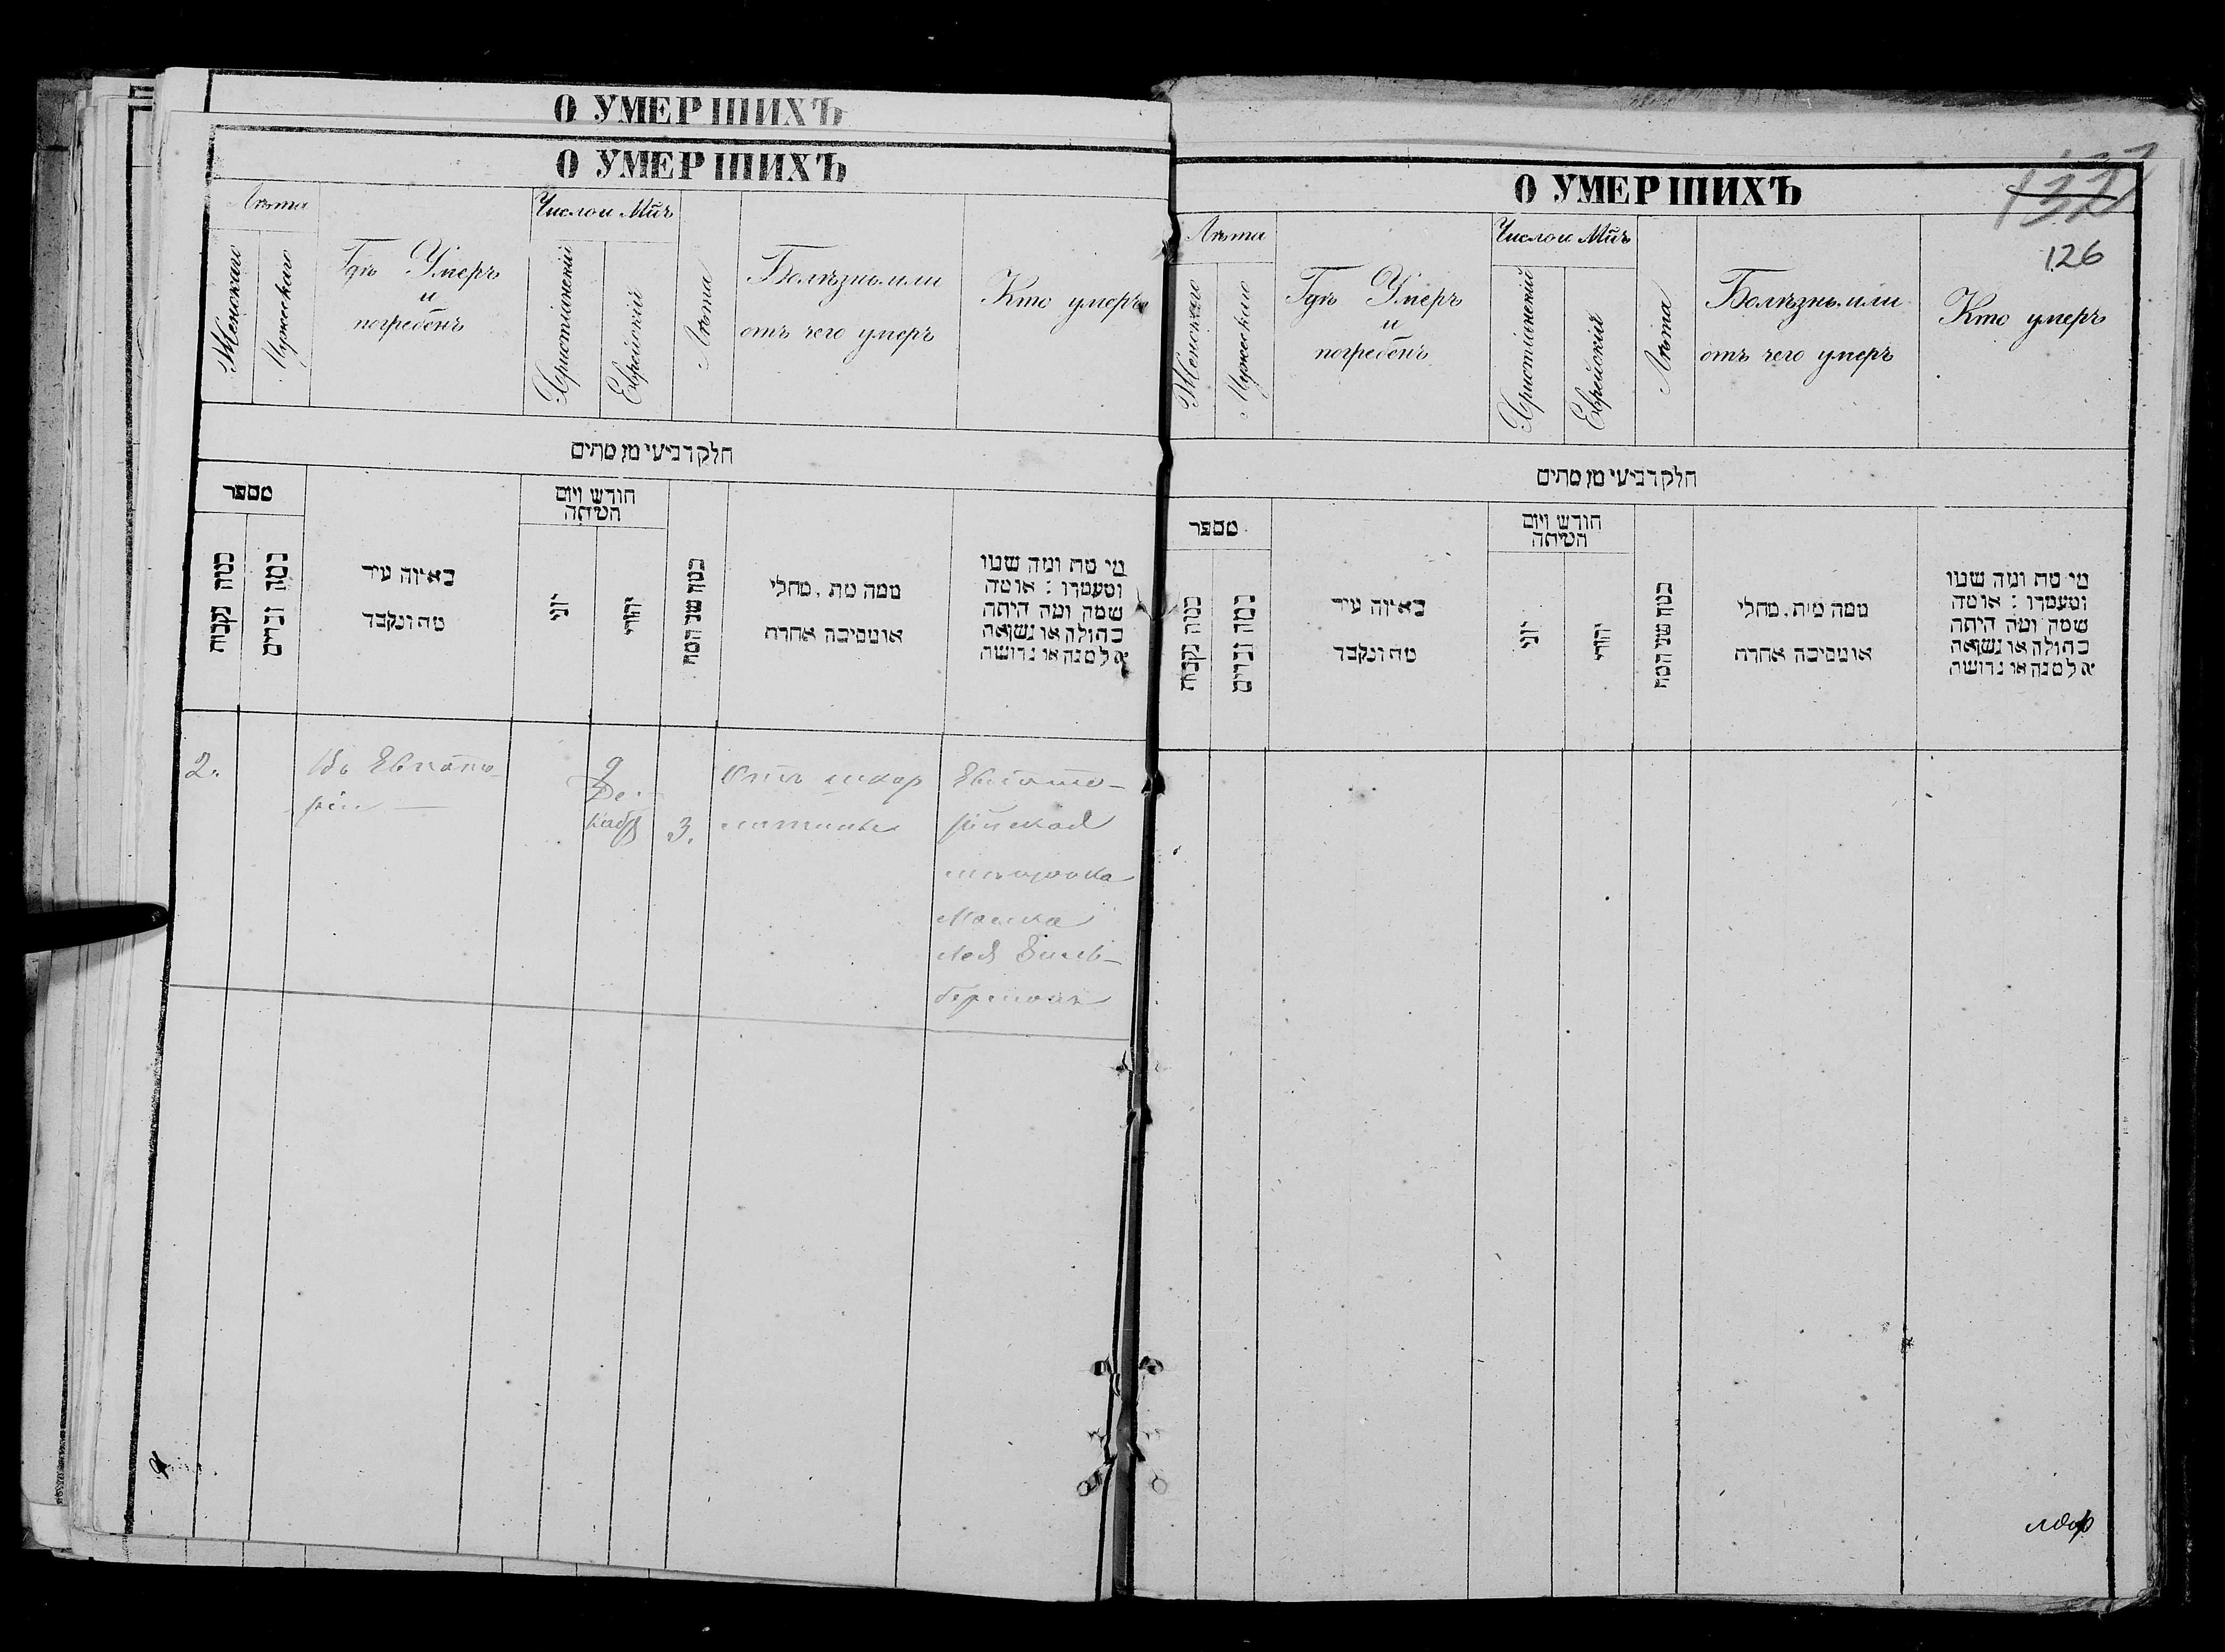 О УМЕРШИХЪ
О УМЕРШИХЪ
Лѣта
Женскаго
Мужескаго
Гдѣ Умеръ
и
погребенъ
Число и Мц̃ъ
Христіянскій
Еврейскій
Лѣта
Болѣзнь или
отъ чего умеръ
Кто умеръ
חלק רביעי מן מתים
מספר
כמה נקבות
כמה זכרים
באיזה עיר
מת ונקבר
חודש ויום
המיתה
יוני
יהודי
כמה שני המת
ממה מת. מחלי
או מסיבה אחרת
מי מת ומה שמו
ומעמדו : או מה
שמה ומה היתה
בתולה או נשואה
אלמנה או גרושה
2.
Въ Евпато-
ріи —
9
Де-
кабр
3.
Отъ скар
латины
Евпато-
рійская
мѣщанка
О УМЕРШИХЪ
126
Лѣта
Женскаго
Мужескаго
Гдѣ Умеръ
и
погребенъ
Число и Мц̃ъ
Христіянскій
Еврейскій
Лѣта
Болѣзнь или
отъ чего умеръ
Кто умеръ
חלק רביעי מן מתים
מספר
כמה נקבות
כמה זכרים
באיזה עיר
מת ונקבר
חודש ויום
המיתה
יוני
יהודי
כמה שני המת
ממה מית. מחלי
או מסיבה אחרת
מי מת ומה שמו
ומעמדו : או מה
שמה ומה היתה
בתולה או נשואה
אלמנה או גרושה